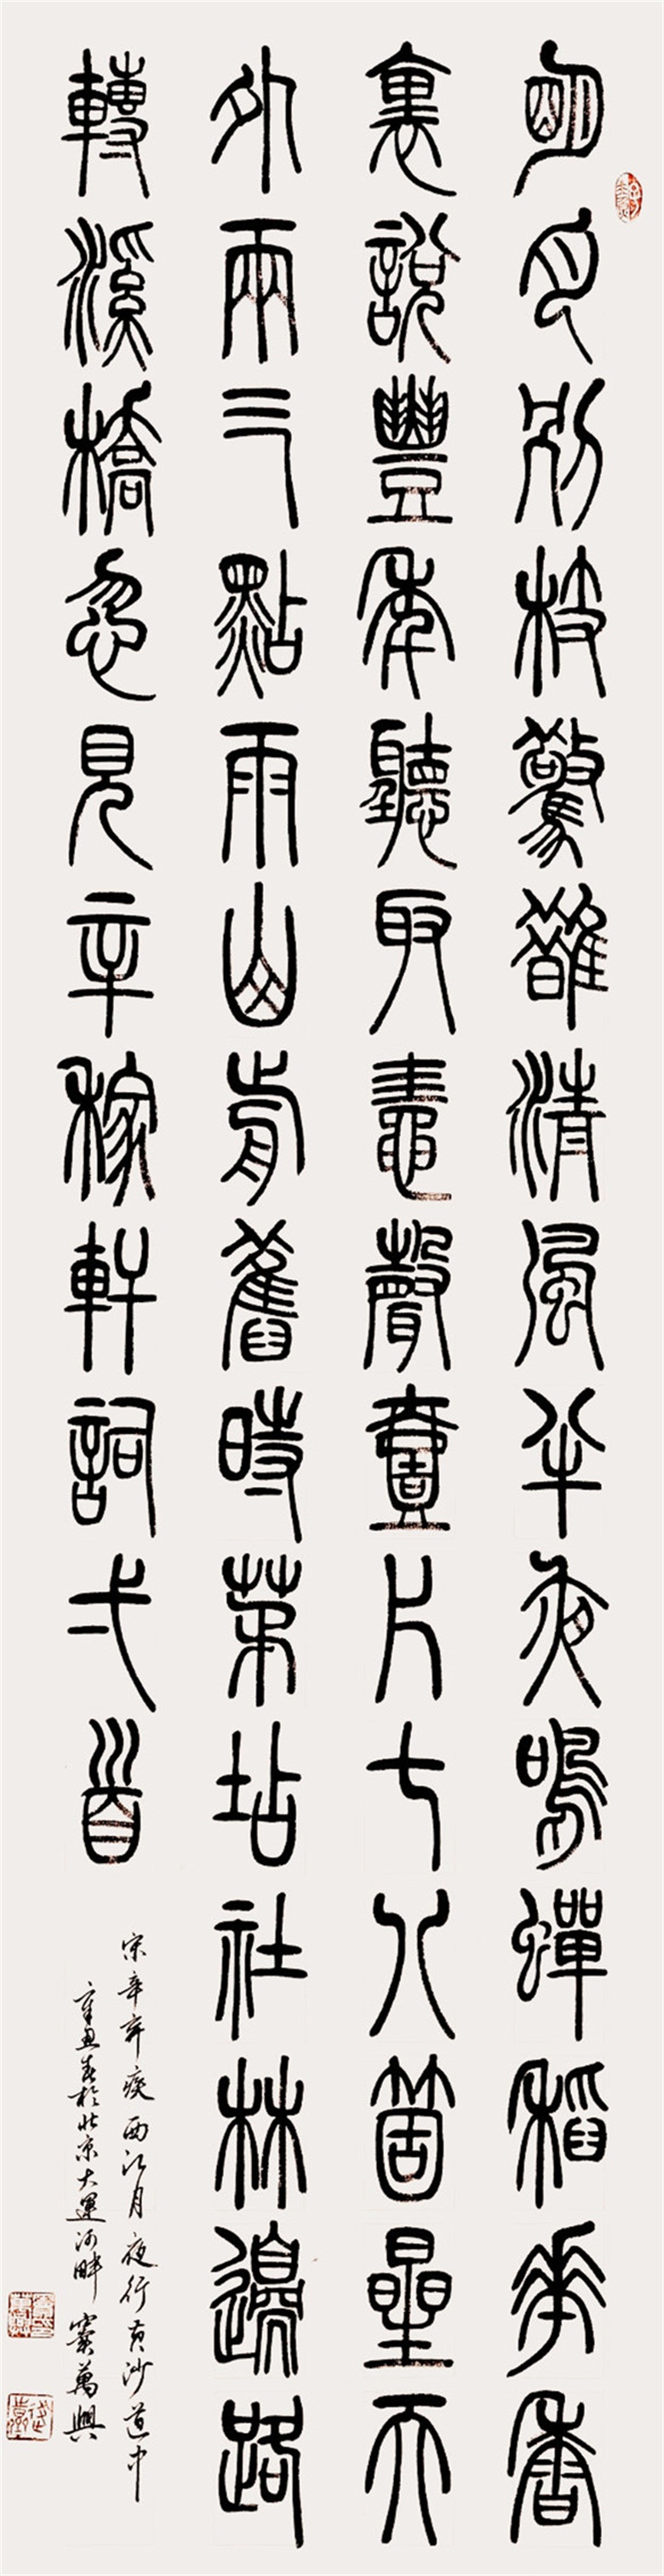 明月別枝驚鵲清風半夜鳴蟬稻花香
裏說豐年聽取鼃聲壹片七八箇星天
外兩三點雨山前舊時茅坫社林邊路
轉溪橋忽見辛稼軒詞弌首
宋辛弃疾西江月夜行黄沙道中
辛丑春於北京大運河畔 竇萬興